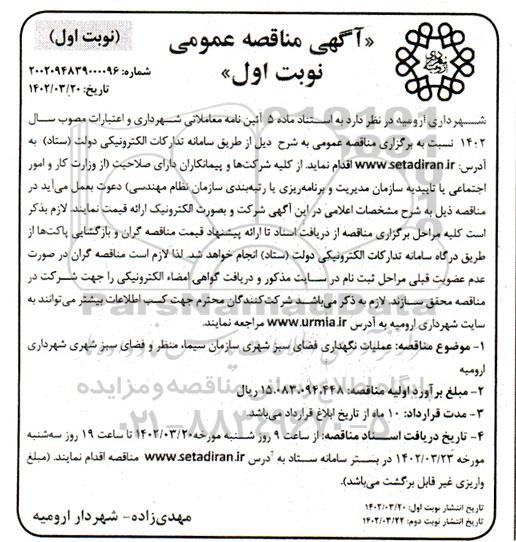 «آگهی مناقصه عمومی
نوبت اول»
(نوبت اول)
شماره: ۲۰۰۲۰۹۴۸۳۹۰۰۰۰۹۶
تاریخ: ۱۴۰۲/۰۳/۲۰
شهرداری ارومیه در نظر دارد به استناد ماده ۵ آئین نامه معاملاتی شهرداری و اعتبارات مصوب سال
۱۴۰۲ نسبت به برگزاری مناقصه عمومی به شرح ذیل از طریق سامانه تدارکات الکترونیکی دولت (ستاد) به
آدرس: www.setadiran.ir اقدام نماید. از کلیه شرکت‌ها و پیمانکاران دارای صلاحیت (از وزارت کار و امور
اجتماعی یا تاییدیه سازمان مدیریت و برنامه‌ریزی یا رتبه‌بندی سازمان نظام مهندسی) دعوت بعمل می‌آید در
مناقصه ذیل به شرح مشخصات اعلامی در این آگهی شرکت و بصورت الکترونیک ارائه قیمت نمایند. لازم بذکر
است کلیه مراحل برگزاری مناقصه از دریافت اسناد تا ارائه پیشنهاد قیمت مناقصه گران و بازگشایی پاکت‌ها از
طریق درگاه سامانه تدارکات الکترونیکی دولت (ستاد) انجام خواهد شد. لذا لازم است مناقصه گران در صورت
عدم عضویت قبلی مراحل ثبت نام در سایت مذکور و دریافت گواهی امضاء الکترونیکی را جهت شرکت در
مناقصه محقق سازند. لازم به ذکر می‌باشد شرکت‌کنندگان محترم جهت کسب اطلاعات بیشتر می‌توانند به
سایت شهرداری ارومیه به آدرس www.urmia.ir مراجعه نمایند.
۱- موضوع مناقصه: عملیات نگهداری فضای سبز شهری سازمان سیما، منظر و فضای سبز شهری شهرداری
ارومیه
۲- مبلغ برآورد اولیه مناقصه: ۱۵.۰۸۳.۰۹۴.۴۴۸ ریال
۳- مدت قرارداد: ۱۰ ماه از تاریخ ابلاغ قرارداد می‌باشد.
۴- تاریخ دریافت اسناد مناقصه: از ساعت ۹ روز شنبه مورخه ۱۴۰۲/۰۳/۲۰ تا ساعت ۱۹ روز سه‌شنبه
مورخه ۱۴۰۲/۰۳/۲۳ در بستر سامانه ستاد به آدرس www.setadiran.ir مناقصه اقدام نمایند. (مبلغ
واریزی غیر قابل برگشت می‌باشد).
تاریخ انتشار نوبت اول: ۱۴۰۲/۰۳/۲۰
تاریخ انتشار نوبت دوم: ۱۴۰۲/۰۳/۲۲
مهدی‌زاده- شهردار ارومیه
ParsNamadData
پایگاه اطلاع رسانی مناقصه و مزایده
۰۲۱-۸۸۳۴۹۶۷۰-۵